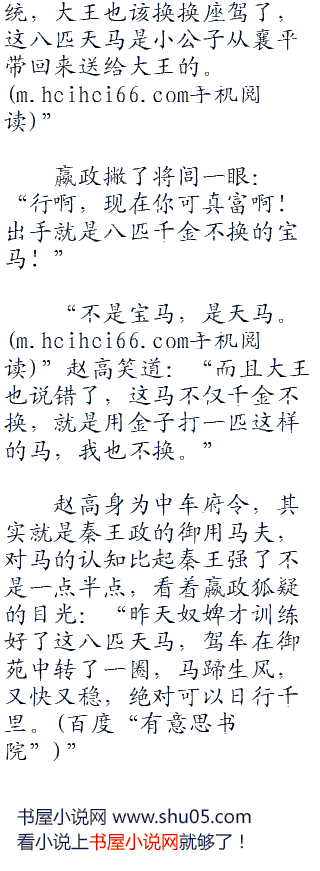 统，大王也该换换座驾了，
这八匹天马是小公子从襄平
带回来送给大王的。
(m.hcihci66.com手机阅
读)”
嬴政撇了将闾一眼：
“行啊，现在你可真富啊！
出手就是八匹千金不换的宝
马！”
“不是宝马，是天马。
(m.hcihci66.com手机阅
读)”赵高笑道：“而且大王
也说错了，这马不仅千金不
换，就是用金子打一匹这样
的马，我也不换。”
赵高身为中车府令，其
实就是秦王政的御用马夫，
对马的认知比起秦王强了不
是一点半点，看着嬴政狐疑
的目光：“昨天奴婢才训练
好了这八匹天马，驾车在御
苑中转了一圈，马蹄生风，
又快又稳，绝对可以日行千
里。(百度“有意思书
院”)”
书屋小说网 www.shu05.com
看小说上书屋小说网就够了！